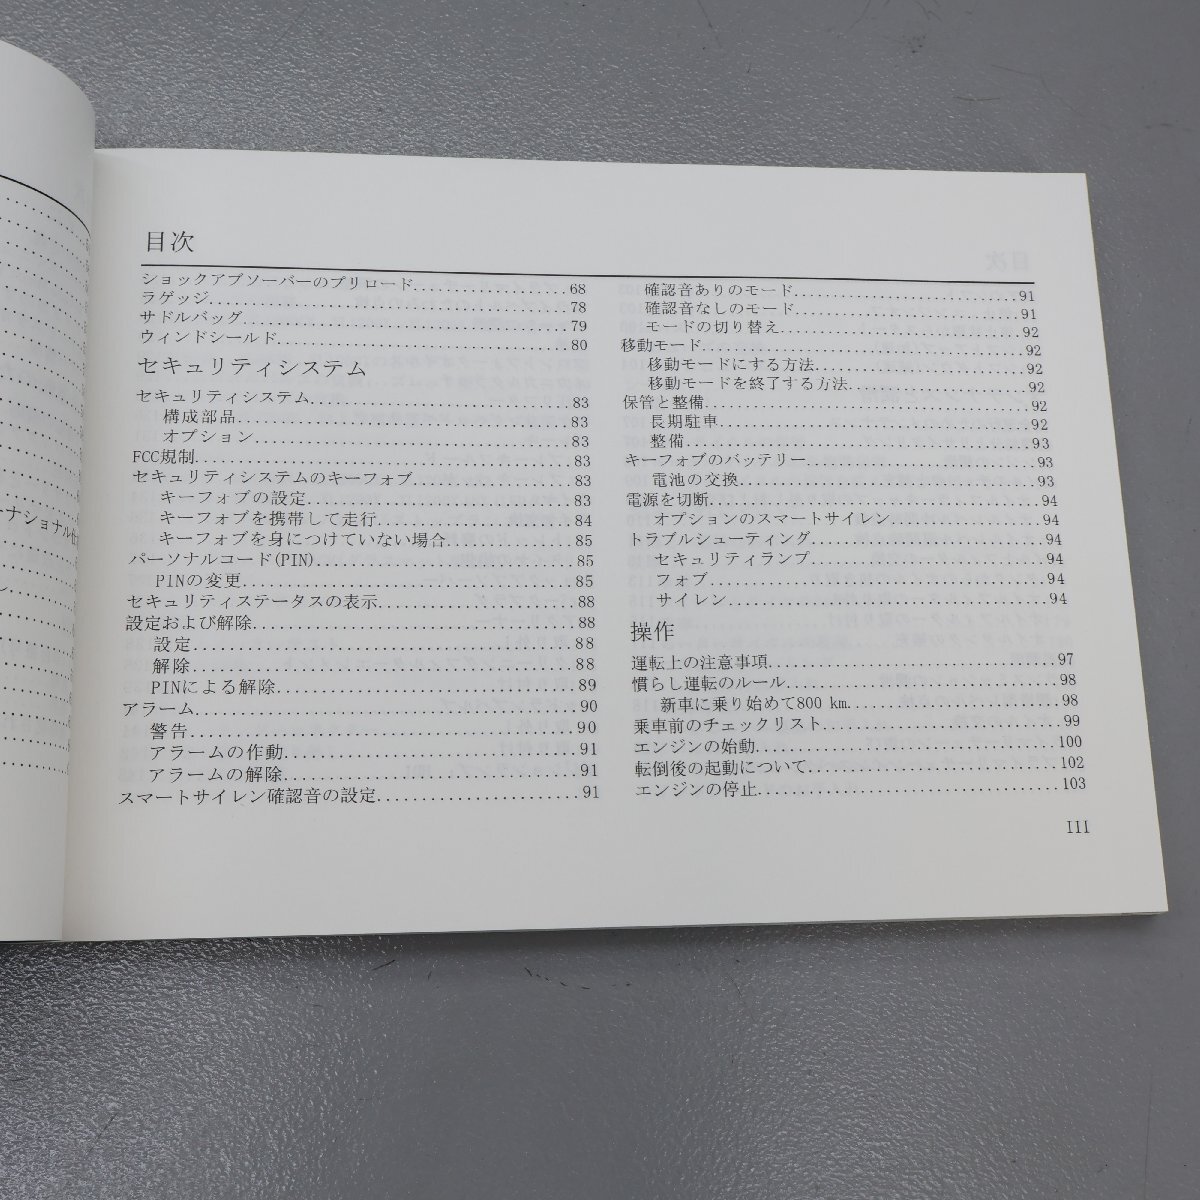 ーナショナル仕
目次
ショックアブソーバーのプリロード....................68
ラゲッジ....................78
サドルバッグ....................79
ウィンドシールド....................80
セキュリティシステム
セキュリティシステム....................83
構成部品....................83
オプション....................83
FCC規制....................83
セキュリティシステムのキーフォブ....................83
キーフォブの設定....................83
キーフォブを携帯して走行....................84
キーフォブを身につけていない場合....................85
パーソナルコード(PIN)....................85
PINの変更....................85
セキュリティステータスの表示....................88
設定および解除....................88
設定....................88
解除....................88
PINによる解除....................89
アラーム....................90
警告....................90
アラームの作動....................91
アラームの解除....................91
スマートサイレン確認音の設定....................91
確認音ありのモード....................91
確認音なしのモード....................91
モードの切り替え....................92
移動モード....................92
移動モードにする方法....................92
移動モードを終了する方法....................92
保管と整備....................92
長期駐車....................92
整備....................93
キーフォブのバッテリー....................93
電池の交換....................93
電源を切断....................94
オプションのスマートサイレン....................94
トラブルシューティング....................94
セキュリティランプ....................94
フォブ....................94
サイレン....................94
操作
運転上の注意事項....................97
慣らし運転のルール....................98
新車に乗り始めて800 km....................98
乗車前のチェックリスト....................99
エンジンの始動....................100
転倒後の起動について....................102
エンジンの停止....................103
III